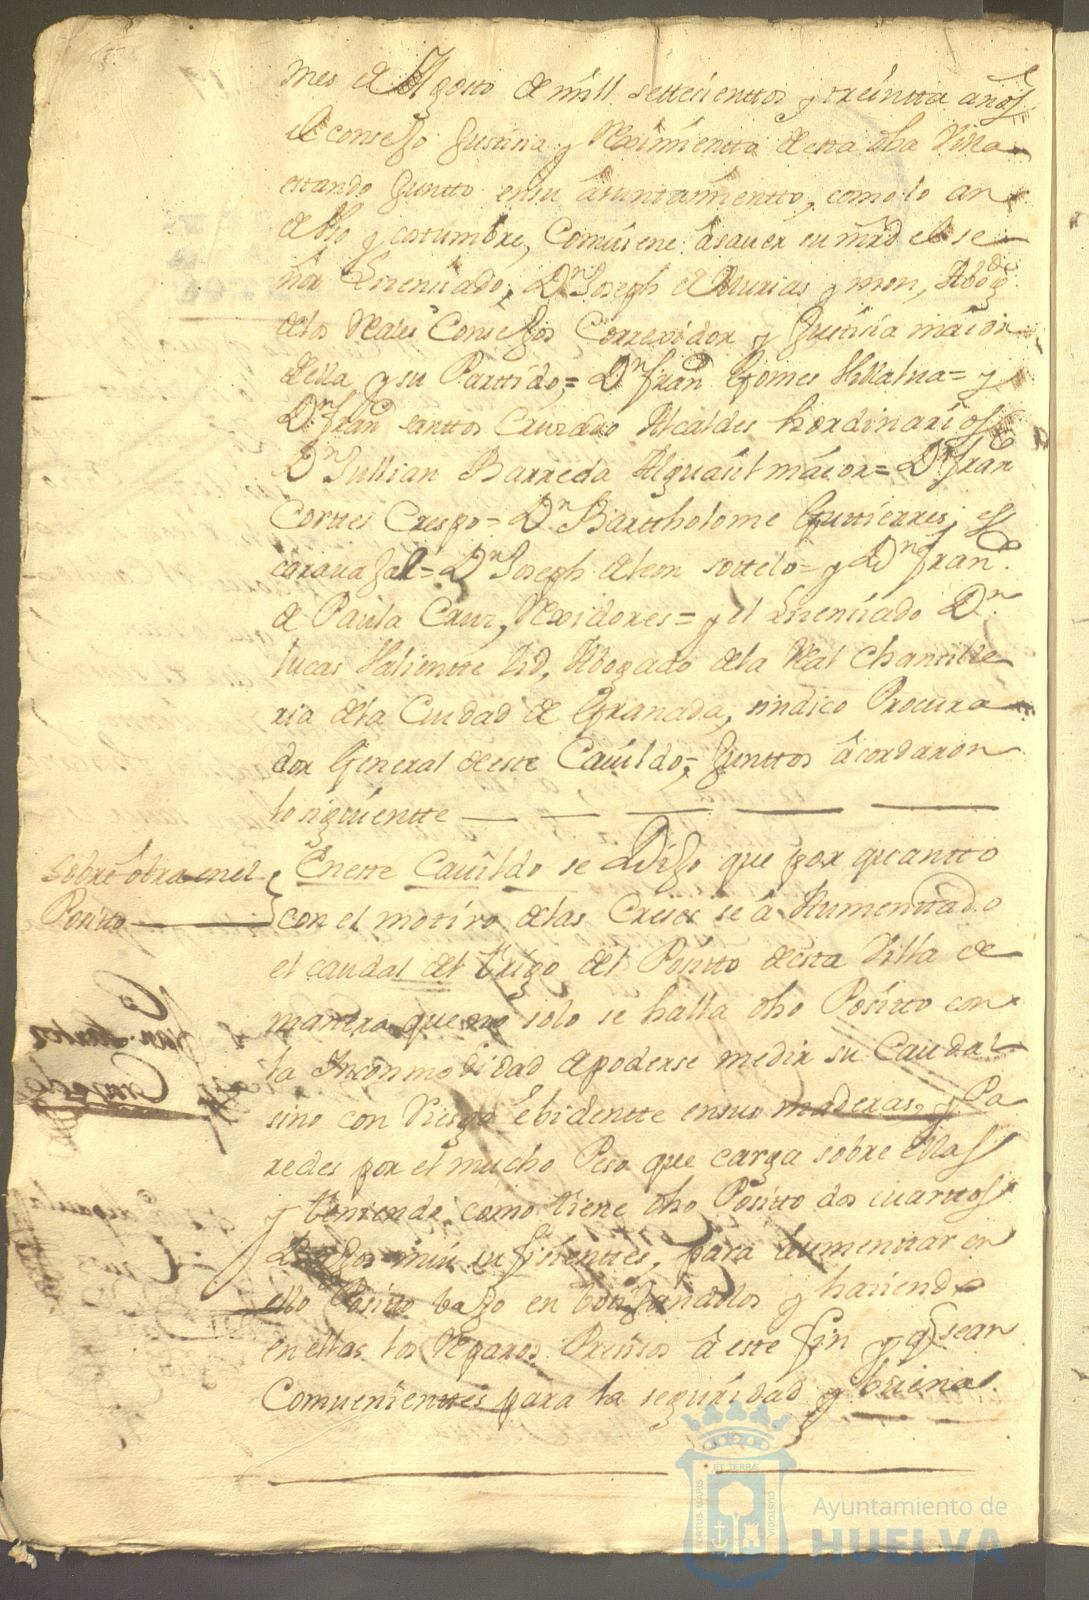 mes de Agosto de mill settecienttos y treintta años
el consejo Justicia y Reximientto de esta dha Villa
estando Juntto en su aiuntamientto, como lo an
de Vso y costumbre, Combiene asauer su mrd el se
ñor Lizenciado, Dn Joseph de Murias y mon, Abogdo
delos Reales Consejos Correxidor y Justicia maior
de ella y su Parttido,= Dn Franco Gomes Villalua= y
Dn Franco santtos Cruzado Alcaldes hordinarios
Dn Jullian Barreda Alguaúil maior= Dn Franco
Corttes Crespo= Dn Barttholome Gutierres, es
carauajal= Dn Joseph de leon sottelo= y Dn Franco
de Paula Cruz, Rexidores= y el Lizenciado Dn
lucas Valientte Cid, Abogado dela Real Chancille
ria dela Ciudad de Granada, sindico Procura
dor General deeste Cauildo,= Junttos acordaron
lo siguientte
sobre obra en el
Positto
En este Cauildo se Dijo que por quantto
con el motivo delas Creces se a Aumenttado
el caudal del trigo del Positto desta Villa de
manera que no solo se halla dho Positto con
la Incommodidad de poderse medir su Caudal
sino con Riesgo Ebidentte en sus maderas, y Pa
redes por el mucho Peso que carga sobre ellas
y teniendo, como tiene dho Positto dos cuarttos
Bajos mui sufisientes, para aumenttar en
ello Positto bajo en y haciendo
en ellas los Reparos Precisos a este fin y q sean
Combenienttes para la seguridad y buena
Ayuntamiento de
HUELVA